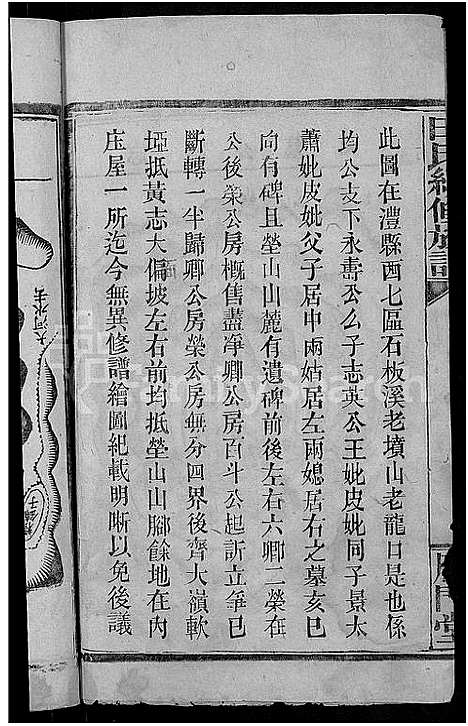 此圖在澧縣西七區石板溪老墳山老龍口是也係
均公支下永壽公么子志英公王妣皮妣同子景大
蕭妣皮妣父子居中兩姑居左兩媳居右之墓亥巳
向有碑且塋山山麓有遺碑前後左右六卿二榮在
公後榮公房概售盡淨卿公房百斗公起訴立爭已
斷轉一半歸卿公房榮公房無分四界後齊大嶺軟
埡抵黃志大偏坡左右前均抵塋山山腳餘地在內
庄屋一所迄今無異修譜繪圖紀載明晰以免後議